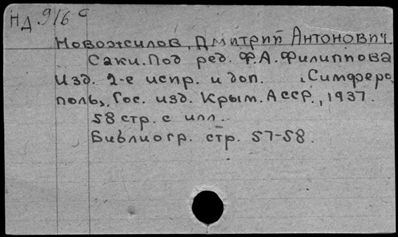 НД 9/69
Новожилов, Дмитрий Антонович.
Саки. Под ред. Ф.А. Филиппова
Изд. 2-е испр. и доп. Симферо
поль, Гос. изд. Крым. АССР, 1937.
58 стр. с илл.
Библиогр. стр. 57-58.